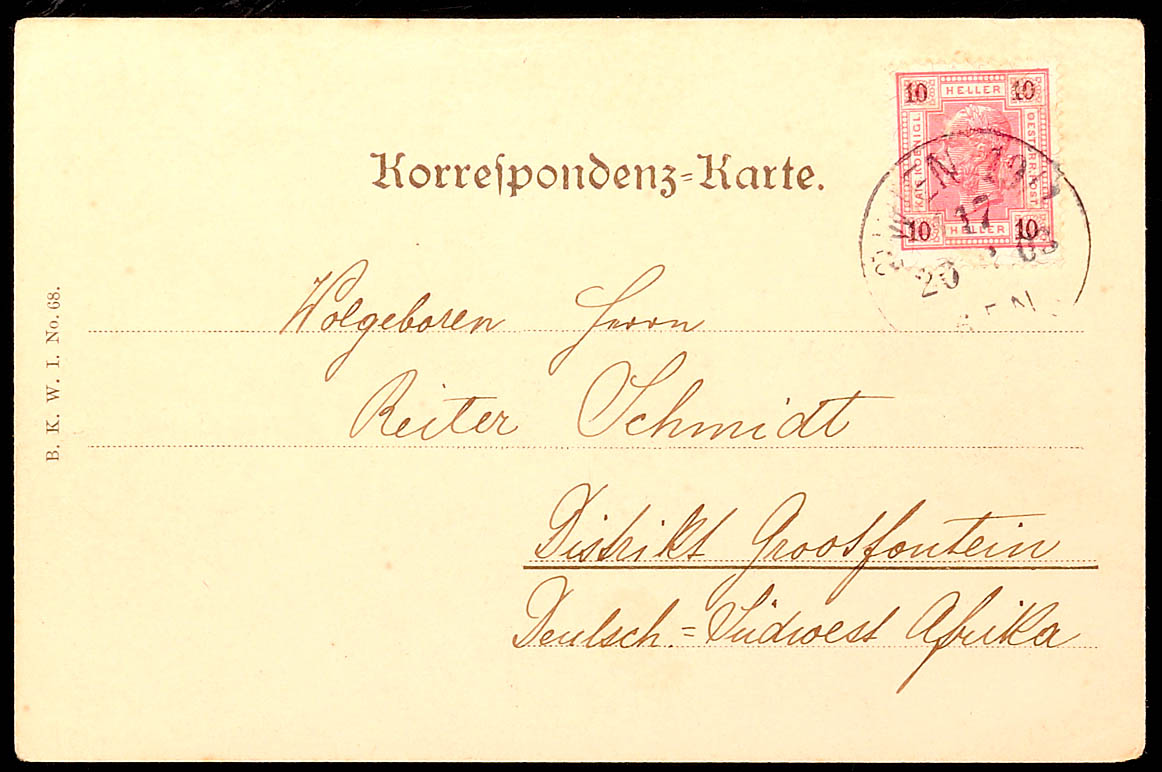 10 HELLER 10
KAIS. KOENIGL.
OESTERR. POST
10 HELLER 10
WIEN
17
20
Korrespondenz-Karte.
B. K. W. I. No. 68.
Wolgeboren Herrn
Reiter Schmidt
Distrikt Grootfontein
Deutsch.=Südwest Afrika